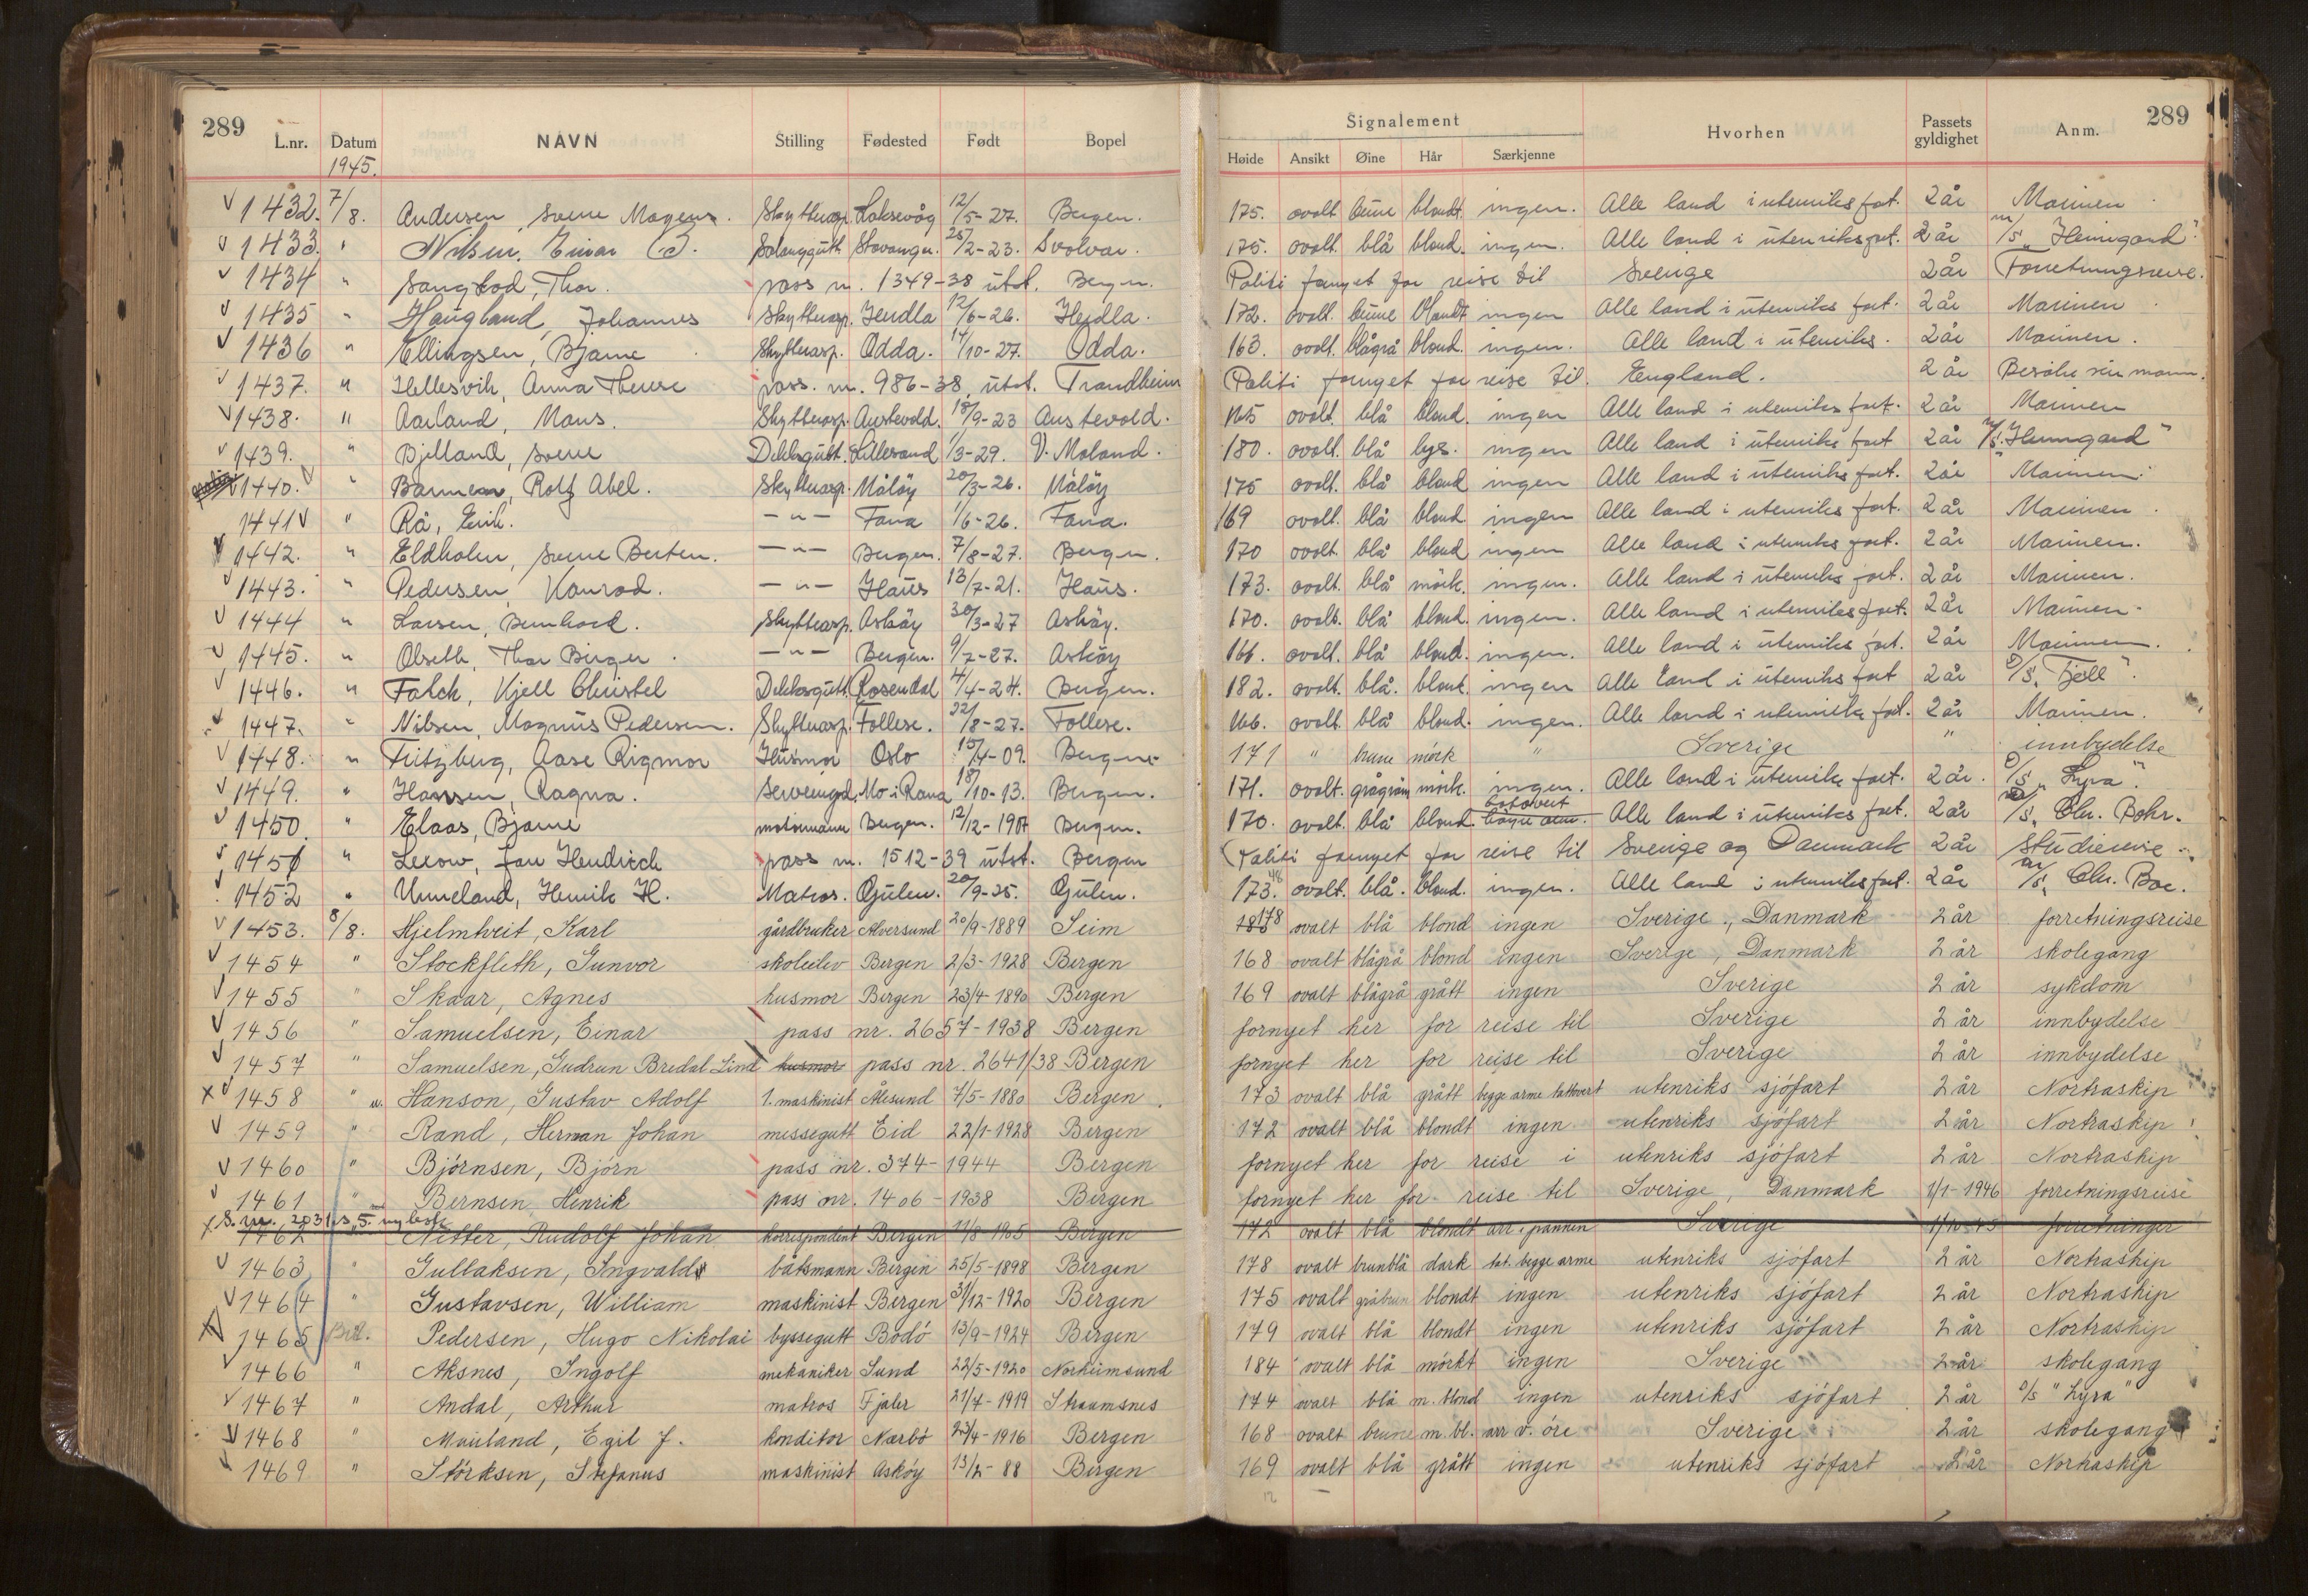 289 289
Signalement
L.nr. Datum NAVN Stilling Fødested Født Bopel Høide Ansikt Øine Hår Særkjenne Hvorhen Passets gyldighet Anm.
1945.
1432. 7/8. Andersen, Sverre Magnus. Skytterasp. Laksevåg 12/5-27. Bergen. 175. ovalt brune blondt ingen. Alle land i utenriks fart. 2 år Marinen
1433. " Nilsen, Einar Stavanger. 25/2-23. Svolvær. 175. ovalt. blå blond. ingen. Alle land i utenriks fart. 2 år m/s "Heimgard".
1434 " Thor. pass nr. 1349-38 utst. Bergen. Politi fornyet for reise til Sverige 2 år Forretningsreise.
1435 " Haugland, Johannes Skytterasp. Herdla 12/6-26. Herdla. 172. ovalt. brune blondt ingen Alle land i utenriks fart. 2 år Marinen
1436 " Ellingsen, Bjarne Skytterasp. Odda. 14/10-27. Odda. 163. ovalt. blågrå blond. ingen. Alle land i utenriks. 2 år Marinen.
1437. " Hellesvik, Anna Therese pass. nr. 986-38 utst. Trondheim Politi fornyet for reise til England. 2 år Besøke sin mann.
1438. " Aarland, Mons. Skytterasp. Austevold. 18/9-23 Austevold. 165 ovalt. blå blond. ingen Alle land i utenriks fart. 2 år Marinen
1439. " Bjelland, Sverre Dekksgutt. Lillesand 1/3-29. V. Moland. 180. ovalt. blå lys. ingen Alle land i utenriks fart 2 år m/s. "Heimgard"
1440. " Barmen, Rolf Abel. Skytterasp. Måløy 20/3-26. Måløy 175 ovalt. blå blond ingen Alle land i utenriks fart. 2 år Marinen.
1441 " Rå, Erik. -"- Fana 1/6-26. Fana. 169 ovalt. blå blond. ingen Alle land i utenriks fart. 2 år Marinen
1442. " Eldholm, Sverre Berten. -"- Bergen. 7/8-27. Bergen. 170 ovalt. blå blond ingen Alle land i utenriks fart. 2 år Marinen.
1443. " Pedersen, Konrad. -"- Haus 13/7-21. Haus. 173. ovalt. blå mörk. ingen. Alle land i utenriks fart. 2 år Marinen.
1444 " Larsen, Bernhard. Skytterasp. Asköy 30/3-27 Asköy. 170. ovalt. blå blond. ingen. Alle land i utenriks fart. 2 år Marinen.
1445. " Olseth, Thor Birger. -"- Bergen. 9/7-27. Asköy 166. ovalt. blå blond. ingen. Alle land i utenriks fart. 2 år Marinen.
1446. " Falck, Kjell Christel Dekksgutt. Rosendal 4/4-24. Bergen. 182. ovalt. blå. blond. ingen Alle land i utenriks fart 2 år D/S. "Fjell".
1447. " Nilsen, Magnus Pedersen. Skytterasp. Follese. 22/8-27. Follese. 166. ovalt. blå blond. ingen. Alle land i utenriks fart. 2 år Marinen.
1448. " Fritzberg, Aase Rigmor Husmor Oslo 15/4-09. Bergen 171 " brune mörk " Sverige " innbydelse
1449. " Hansen, Ragna. Mo i Rana 18/10-13. Bergen. 171. ovalt. grågrön mörk. ingen. Alle land i utenriks fart. 2 år. D/S. "Lyra".
1450. " Elaas, Bjarne motormann Bergen. 12/12-1907 Bergen. 170. ovalt. blå blond. tatovert höyre arm. Alle land i utenriks fart. 2 år m/s. Chr. Bohr.
1451 " Lexow, Jan Hendrich pass nr. 1512-39 utst. Bergen Politi fornyet for reise til Sverige og Danmark 2 år Studiereise
1452 " Unneland, Henrik H. Matros. Gulen. 20/9-25. Gulen. 173. ovalt. blå. blond. ingen. Alle land i utenriks fart. 2 år m/s. Chr. Boe.
1453. 8/8. Hjelmtveit, Karl gårdbruker Alversund 20/9-1889 Seim 178 ovalt blå blond ingen Sverige., Danmark 2 år forretningsreise
1454 " Stockfleth, Gunvor skoleelev Bergen 2/3-1928 Bergen 168 ovalt blågrå blond ingen Sverge, Danmark 2 år skolegang
1455 " Skaar, Agnes husmor Bergen 23/4-1890 Bergen 169 ovalt blågrå grått ingen Sverige 2 år sykdom
1456 " Samuelsen, Einar pass nr. 2657-1938 Bergen fornyet her for reise til Sverige 2 år innbydelse
1457 " Samuelsen, Gudrun Bredal Lind husmor pass nr. 2641/38 Bergen fornyet her for reise til Sverige 2 år innbydelse
x 1458 " Hanson, Gustav Adolf 1. maskinist Ålesund 7/5-1880 Bergen. 173 ovalt blå grått begge arme tattovert utenriks sjöfart 2 år Nortraskip
1459 " Rand, Herman Johan messegutt Eid 22/1-1928 Bergen 172 ovalt blå blondt ingen utenriks sjöfart 2 år Nortraskip
1460 " Björnsen, Björn pass nr. 374-1944 Bergen fornyet her for reise i utenriks sjöfart 2 år Nortraskip
1461 " Bernsen, Henrik pass nr. 1406-1938 Bergen fornyet her for reise til Sverige, Danmark 1/1-1946 forretningsreise
1462 Netter, Rudolf Johan korrespondent Bergen 11/8-1905 Bergen 172 ovalt blå blondt arr i pannen Sverige 1/10-45 forretninger
1463 " Gullaksen, Ingvald båtsmann Bergen 25/5-1898 Bergen 178 ovalt brunblå dark tat. begge arme utenriks sjöfart 2 år Nortraskip
1464 " Gustavsen, William maskinist Bergen 31/12-1920 Bergen 175 ovalt gråbrun blondt ingen utenriks sjöfart 2 år Nortraskip
1465 Pedersen, Hugo Nikolai byssegutt Bodö 13/9-1924 Bergen 179 ovalt blå blondt ingen utenriks sjöfart 2 år Nortraskip
1466 " Aksnes, Ingolf mekaniker Sund 22/5-1920 Norheimsund 184 ovalt blå mörkt ingen Sverige 2 år skolegang
1467 " Andal, Arthur matros Fjaler 21/7-1919 Straumsnes 174 ovalt blå m. blond ingen utenriks sjöfart 2 år D/s "Lyra"
1468 " Mauland, Egil J. konditor Nærbö 23/4-1916 Bergen 168 ovalt brune m. bl. arr v. öre Sverige 2 år skolegang
1469 " Störksen, Stefanus maskinist Asköy 13/2-88 Bergen 169 ovalt blå grått ingen utenriks sjöfart 2 år Nortraskip